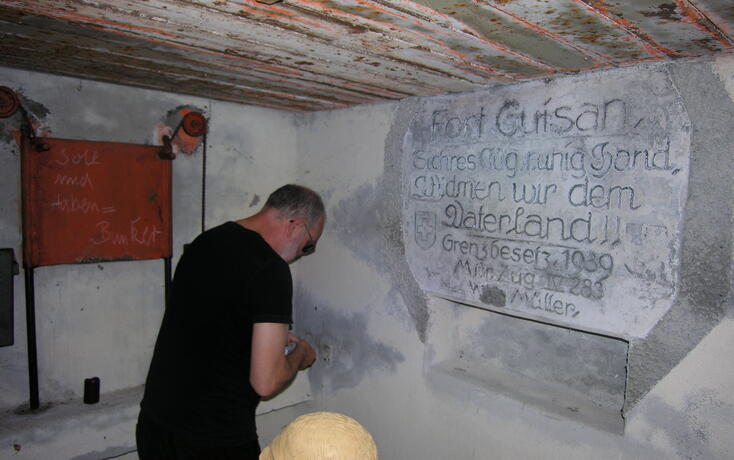 Sole
und
Haben =
Bunker
Fort Guisan,
Sichres Aug, ruhig Hand,
Widmen wir dem
Vaterland!!
Grenzbesetz. 1939
Mitr. Zug. IV 283
Müller,